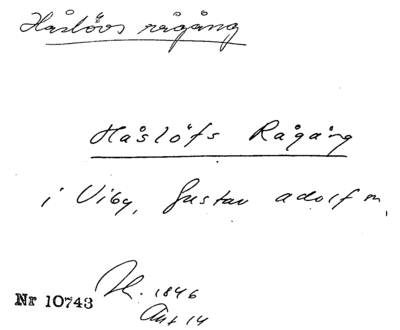 Håslövs rågång
Håslöfs Rågång
i Viby, Gustav adolf m,
Nr 10743
1846
Akt 14